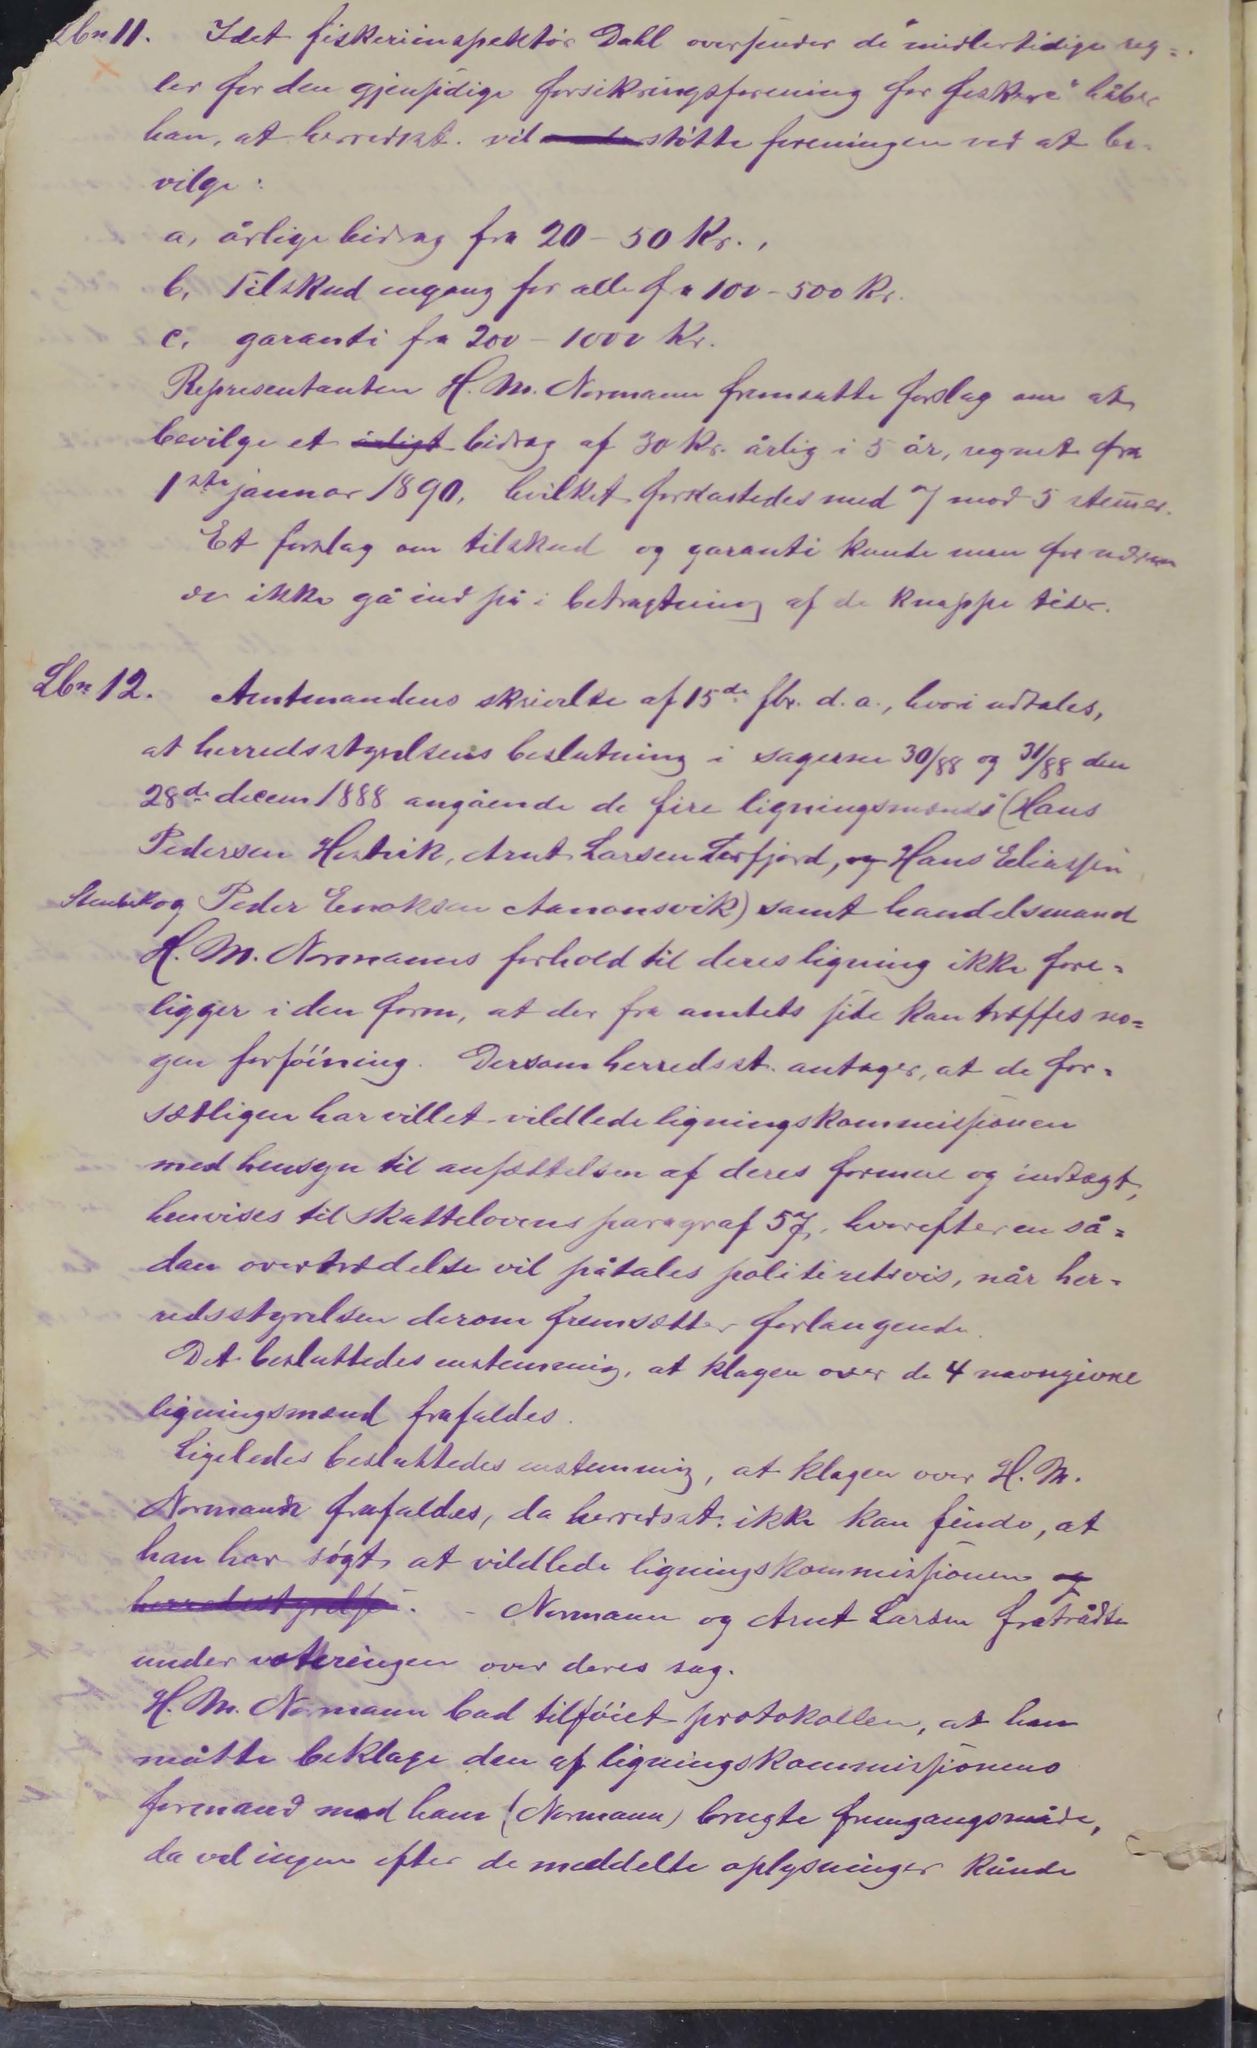 Lbn 11. Idet fiskeriinspektør Dahl oversender de "midlertidige reg=
ler for den gjensidige forsikringsforening for fiskere" håber
han, at herredsst. vil støtte foreningen ved at be-
vilge:
a, årlige bidrag fra 20 – 50 Kr.,
b, Tilskud engang for alle fra 100 – 500 Kr.
c, garanti fra 200 – 1000 Kr.
Representanten H. M. Normann fremsatte forslag om at
bevilge et årligt bidrag af 30 Kr. årlig i 5 år, regnet fra
1ste januar 1890, hvilket forkastedes med 7 mod 5 stemer.
Et forslag om tilskud og garanti kunde man
ikke gå ind på i betragtning af de knappe tider.
Lbn 12. Amtmandens skrivelse af 15de fbr. d. a., hvori udtales,
at herredsstyrelsens beslutning i sagerne 30/88 og 31/88 den
28de decem 1888 angående de fire ligningsmænds (Hans
Pedersen Hestvik, Arnt Larsen Lerfjord, og Hans Eliassen
og Peder Enoksen Aanonsvik) samt handelsmand
H. M. Normanns forhold til deres ligning ikke fore=
ligger i den form, at der fra amtets side kan træffes no=
gen forføining. Dersom herredsst. antager, at de for=
sætligen har villet vildlede ligningskommissionen
med hensyn til ansættelsen af deres formue og indtægt,
henvises til skattelovens paragraf 57, hvorefter en så=
dan overtrædelse vil påtales politiretsvis, når her=
redsstyrelsen derom fremsætter forlangende.
Det besluttedes enstemmig, at klagen over de 4 navngivne
ligningsmænd frafaldes.
Ligeledes besluttedes enstemmig, at klagen over H. M.
Normann frafaldes, da herredsst. ikke kan finde, at
han har søgt at vildlede ligningskommissionen og
herredsstyrelse. - Normann og Arnt Larsen fratrådte
under voteringen over deres sag.
H. M. Normann bad tilføiet protokollen, at han
måtte beklage den af ligningskommissionens
formand mod ham (Normann) brugte fremgangsmåde,
da vel ingen efter de meddelte oplysninger kunde